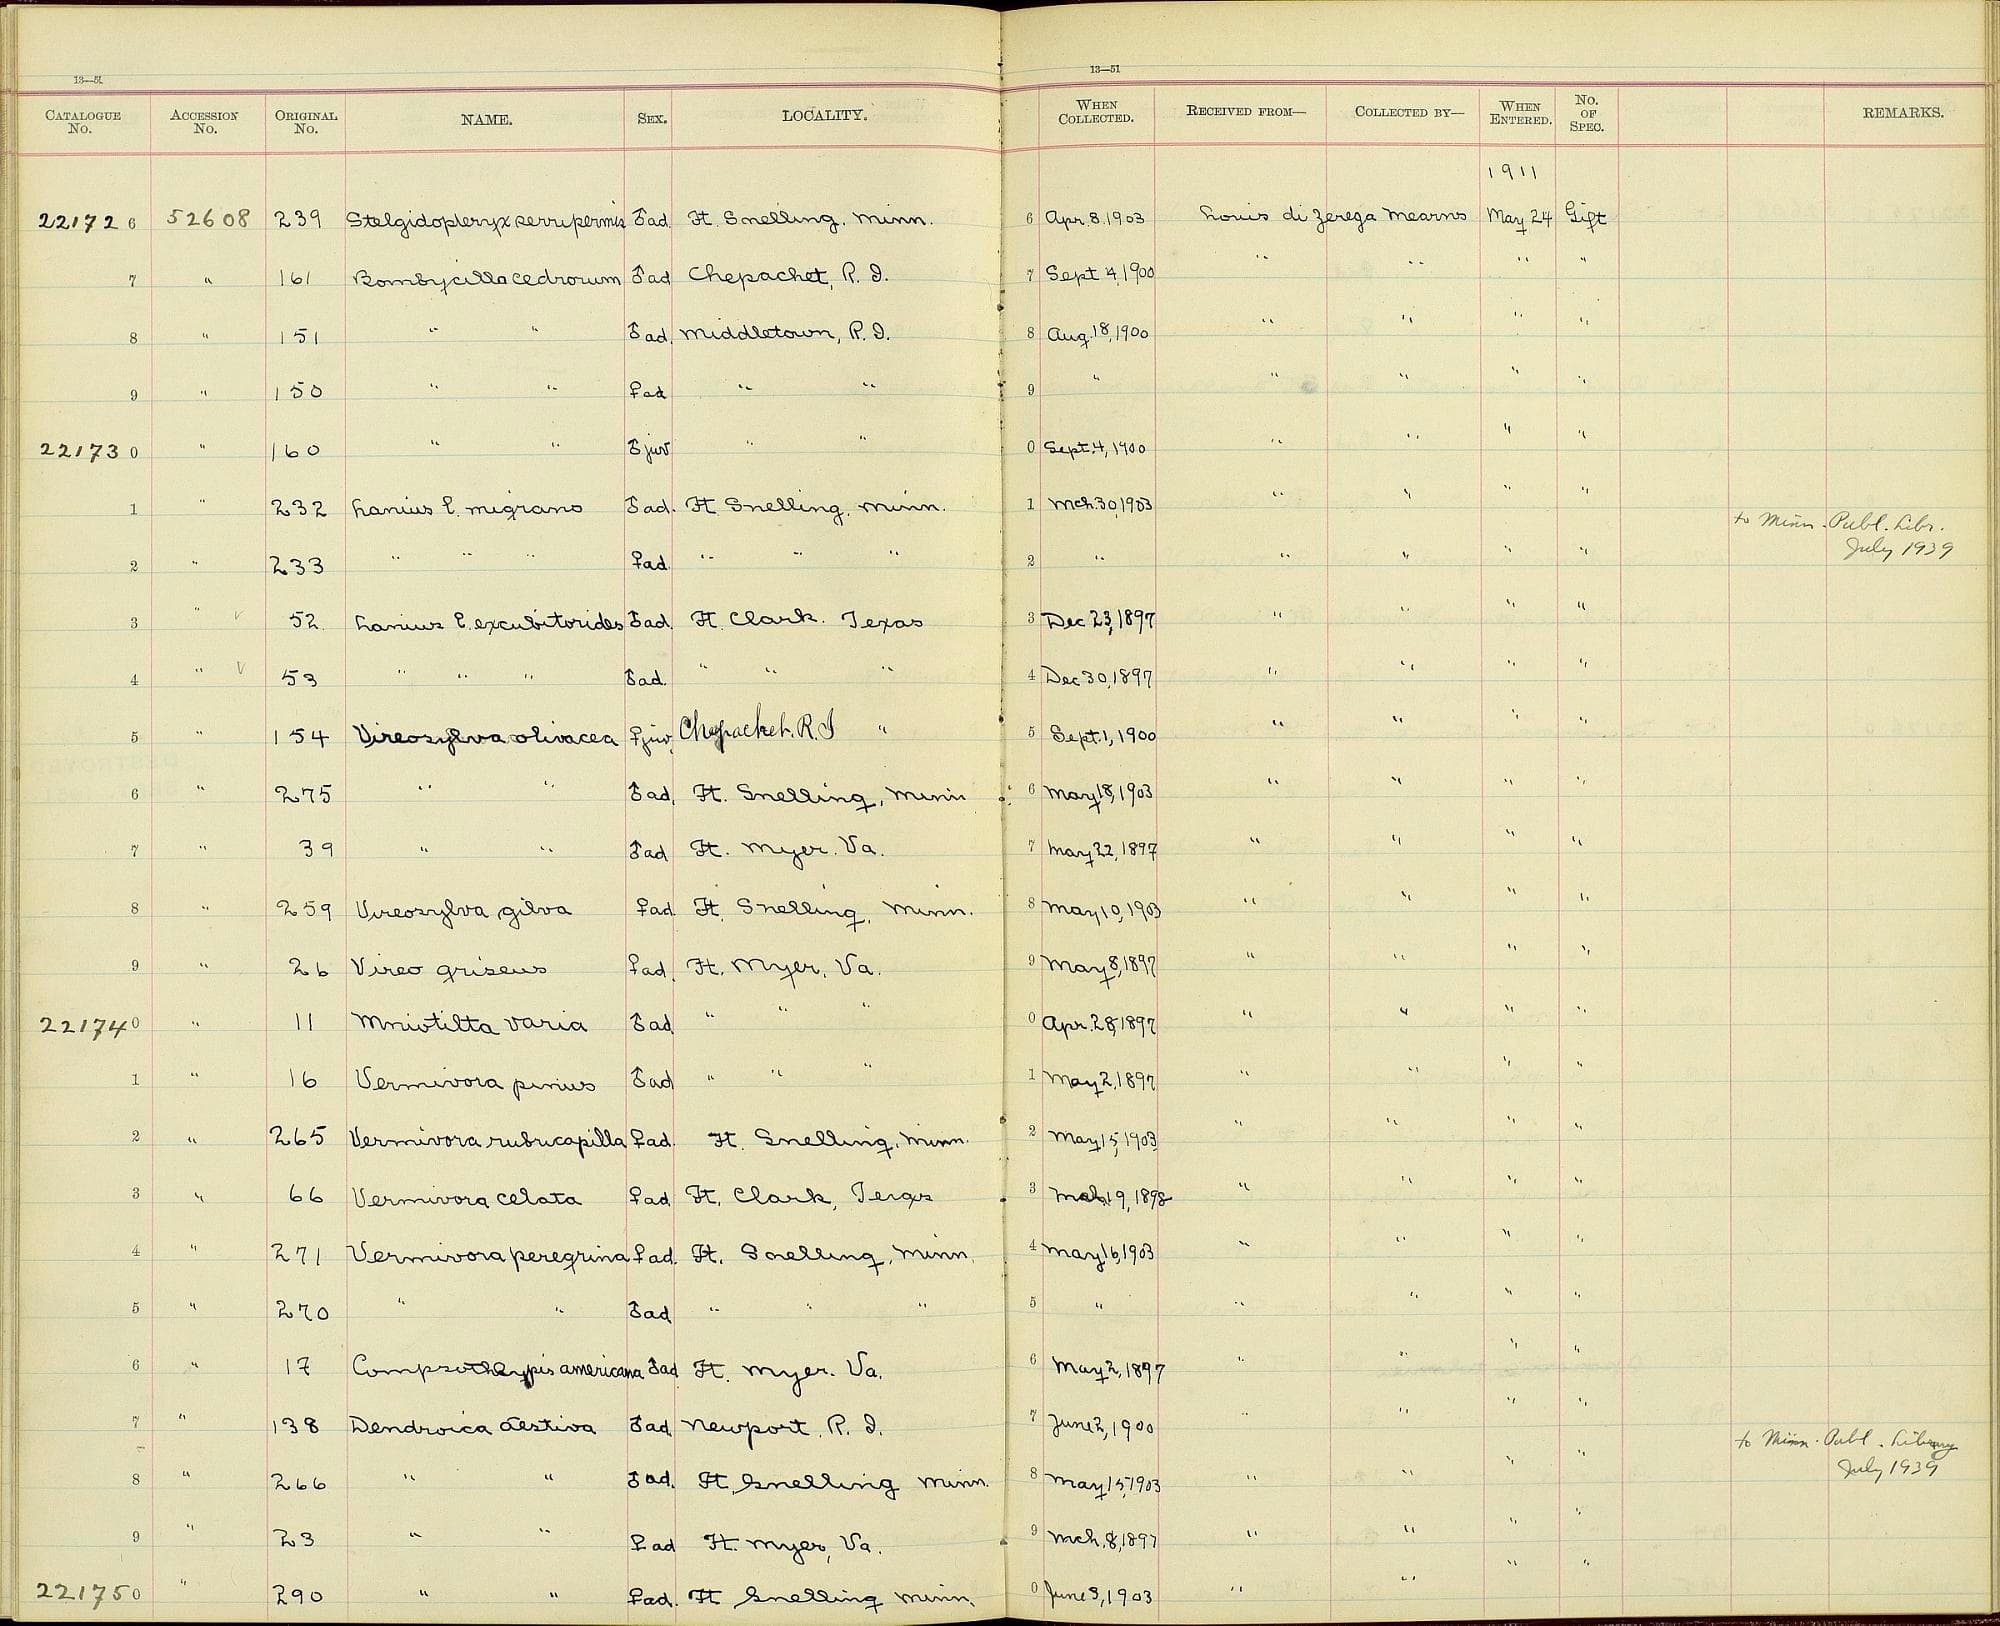 13—51 13—51
CATALOGUE No. ACCESSION No. ORIGINAL No. NAME. SEX. LOCALITY. WHEN COLLECTED. RECEIVED FROM— COLLECTED BY— WHEN ENTERED. No. OF SPEC. REMARKS.
1911
221726 52608 239 Stelgidopteryx serripennis ♂ad. Ft. Snelling, Minn. 6 Apr. 8, 1903 Louis di Zerega Mearns May 24 Gift
7 " 161 Bombycilla cedrorum ♂ad Chepachet, R. I. 7 Sept 4, 1900 " " " "
8 " 151 " " ♂ad. Middletown, R. I. 8 Aug. 18, 1900 " " " "
9 " 150 " " ♀ad " " 9 " " " " "
221730 " 160 " " ♂juv " " 0 Sept. 4, 1900 " " " "
1 " 232 Lanius l. migrans ♂ad. Ft Snelling, Minn. 1 Mch. 30, 1903 " " " "
to Minn. Publ. Libr.
July 1939
2 " 233 " " " ♀ad. " " " 2 " " " " "
3 " v 52 Lanius l. excubitorides ♂ad. Ft. Clark. Texas 3 Dec 23, 1897 " " " "
4 " v 53 " " " ♂ad. " " " 4 Dec 30, 1897 " " " "
5 " 154 Vireosylva olivacea ♀juv. Chepachet. R. I " 5 Sept. 1, 1900 " " " "
6 " 275 " " ♂ad. Ft. Snelling, Minn 6 May 18, 1903 " " " "
7 " 39 " " ♂ad Ft. Myer. Va. 7 May 22, 1897 " " " "
8 " 259 Vireosylva gilva ♀ad. Ft. Snelling, Minn. 8 May 10, 1903 " " " "
9 " 26 Vireo griseus ♀ad. Ft. Myer, Va. 9 May 8, 1897 " " " "
221740 " 11 Mniotilta varia ♂ad " " " 0 Apr. 28, 1897 " " " "
1 " 16 Vermivora pinus ♂ad " " " 1 May 2, 1897 " " " "
2 " 265 Vermivora rubricapilla ♀ad. Ft. Snelling, Minn. 2 May 15, 1903 " " " "
3 " 66 Vermivora celata ♀ad Ft. Clark, Texas 3 Mch. 19, 1898 " " " "
4 " 271 Vermivora peregrina ♀ad. Ft. Snelling, Minn. 4 May 16, 1903 " " " "
5 " 270 " " ♂ad " " " 5 " " " " "
6 " 17 Compsothlypis americana ♂ad Ft. Myer. Va. 6 May 2, 1897 " " " "
7 " 138 Dendroica aestiva ♂ad Newport, R. I. 7 June 2, 1900 " " " "
to Minn. Publ. Library
July 1939
8 " 266 " " ♂ad. Ft. Snelling Minn. 8 May 15, 1903 " " " "
9 " 23 " " ♀ad Ft. Myer, Va. 9 Mch. 8, 1897 " " " "
221750 " 290 " " ♀ad. Ft Snelling Minn. 0 June 3, 1903 " " " "